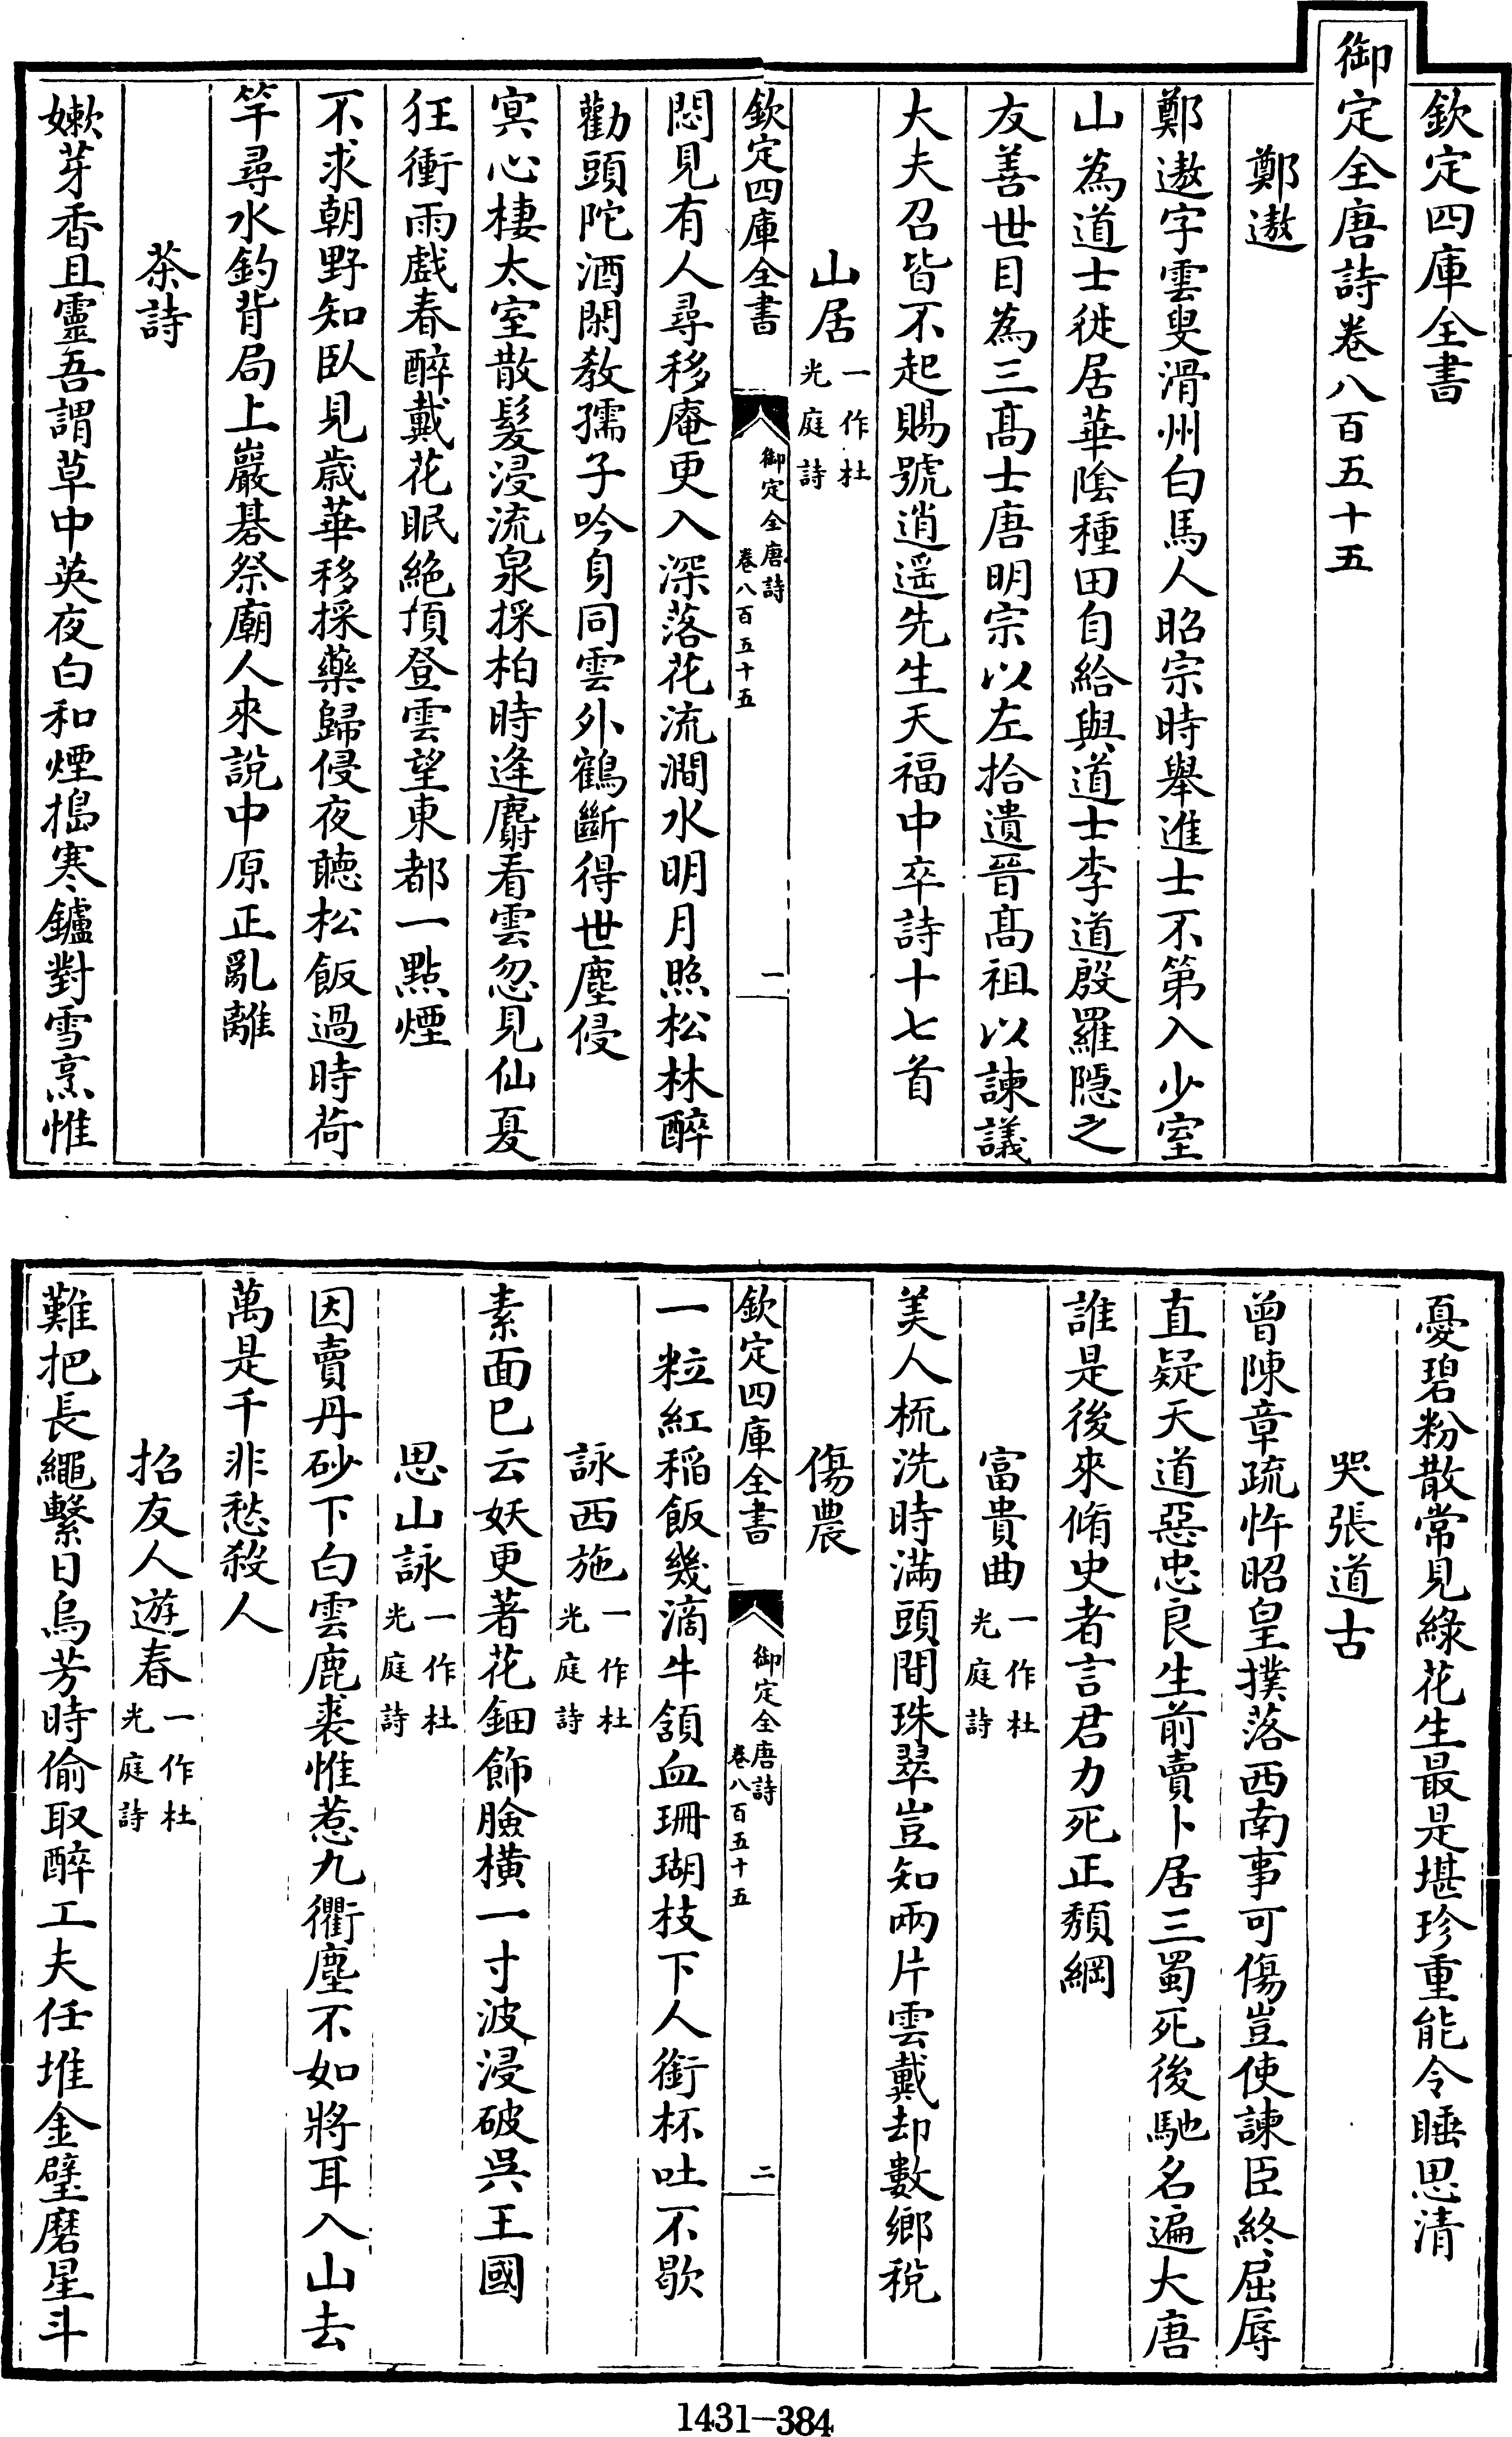 欽定四庫全書
御定全唐詩卷八百五十五
鄭遨
鄭遨字雲叟滑州白馬人昭宗時舉進士不第入少室
山為道士徙居華陰種田自給與道士李道殷羅隱之
友善世目為三髙士唐明宗以左拾遺晉髙祖以諫議
大夫召皆不起賜號逍遥先生天福中卒詩十七首
山居一作杜光庭詩
欽定四庫全書 御定全唐詩卷八百五十五 一
悶見有人尋移庵更入深落花流澗水明月照松林醉
勸頭陀酒閑教孺子吟身同雲外鶴斷得世塵侵
冥心棲太室散髪浸流泉採柏時逢麝看雲忽見仙夏
狂衝雨戲春醉戴花眠絶頂登雲望東都一點煙
不求朝野知臥見歳華移採藥歸侵夜聽松飯過時荷
竿尋水釣背局上巖碁祭廟人來說中原正亂離
茶詩
嫰芽香且靈吾謂草中英夜臼和煙搗寒鑪對雪烹惟
憂碧粉散常見綠花生最是堪珍重能令睡思清
哭張道古
曾陳章疏忤昭皇撲落西南事可傷豈使諫臣終屈辱
直疑天道惡忠良生前賣卜居三蜀死後馳名遍大唐
誰是後來脩史者言君力死正頽綱
富貴曲一作杜光庭詩
美人梳洗時滿頭間珠翠豈知兩片雲戴却數鄉稅
傷農
欽定四庫全書 御定全唐詩卷八百五十五 二
一粒紅稻飯幾滴牛頷血珊瑚枝下人銜杯吐不歇
詠西施一作杜光庭詩
素面已云妖更著花鈿飾臉橫一寸波浸破吳王國
思山詠一作杜光庭詩
因賣丹砂下白雲鹿裘惟惹九衢塵不如將耳入山去
萬是千非愁殺人
招友人遊春一作杜光庭詩
難把長繩繫日烏芳時偷取醉工夫任堆金璧磨星斗
1431-384